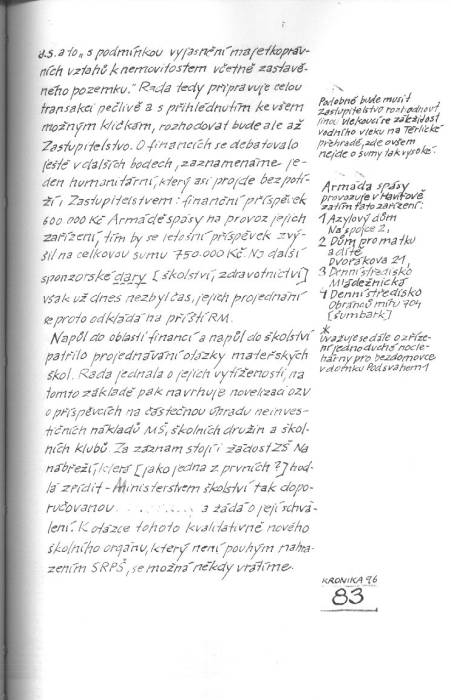 a.s. a to „s podmínkou vyjasnění majetkopráv-
ních vztahů k nemovitostem včetně zastavě-
ného pozemku." Rada tedy připravuje celou
transakci pečlivě a s přihlédnutím ke všem
možným kličkám, rozhodovat bude ale až
Zastupitelstvo. O financích se debatovalo
ještě v dalších bodech, zaznamenáme je-
den humanitární, který asi projde bez potí-
ží i Zastupitelstvem: finanční příspěvek
600.000 Kč Armádě spásy na provoz jejich
zařízení, tím by se letošní příspěvek zvý-
šil na celkovou sumu 750.000 Kč. Na další
sponzorské dary [školství, zdravotnictví]
však už dnes nezbyl čas, jejich projednání
se proto odkládá na příští RM.
Napůl do oblasti financí a napůl do školství
patřilo projednávání otázky mateřských
škol. Rada jednala o jejich vytíženosti, na
tomto základě pak navrhuje novelizaci OZV
o příspěvcích na částečnou úhradu neinves-
tičních nákladů MŠ, školních družin a škol-
ních klubů. Za záznam stojí i žádost ZŠ Na
nábřeží, která [jako jedna z prvních?] hod-
lá zřídit - Ministerstvem školství tak dopo-
ručovanou .......... a žádá o její schvá-
lení. K otázce tohoto kvalitativně nového
školního orgánu, který není pouhým nahra-
zením SRPŠ, se možná někdy vrátíme.
Podobně bude muset
Zastupitelstvo rozhodnout
finá vlekoucí se záležitost
vodního vleku na Těrlické
přehradě, zde ovšem
nejde o sumy tak vysoké.
Armáda spásy
provozuje v Havířově
zatím tato zařízení:
1 Azylový dům
Na spojce 2,
2 Dům pro matku
a dítě
Dvořákova 21,
3 Denní středisko
Mládežnická
4 Denní středisko
Obránců míru 704
[Šumbark]
*
Uvažuje se dále o zříze-
ní jednoduché nocle-
hárny pro bezdomovce
v domku Pod Svahem 1
KRONIKA 96
83